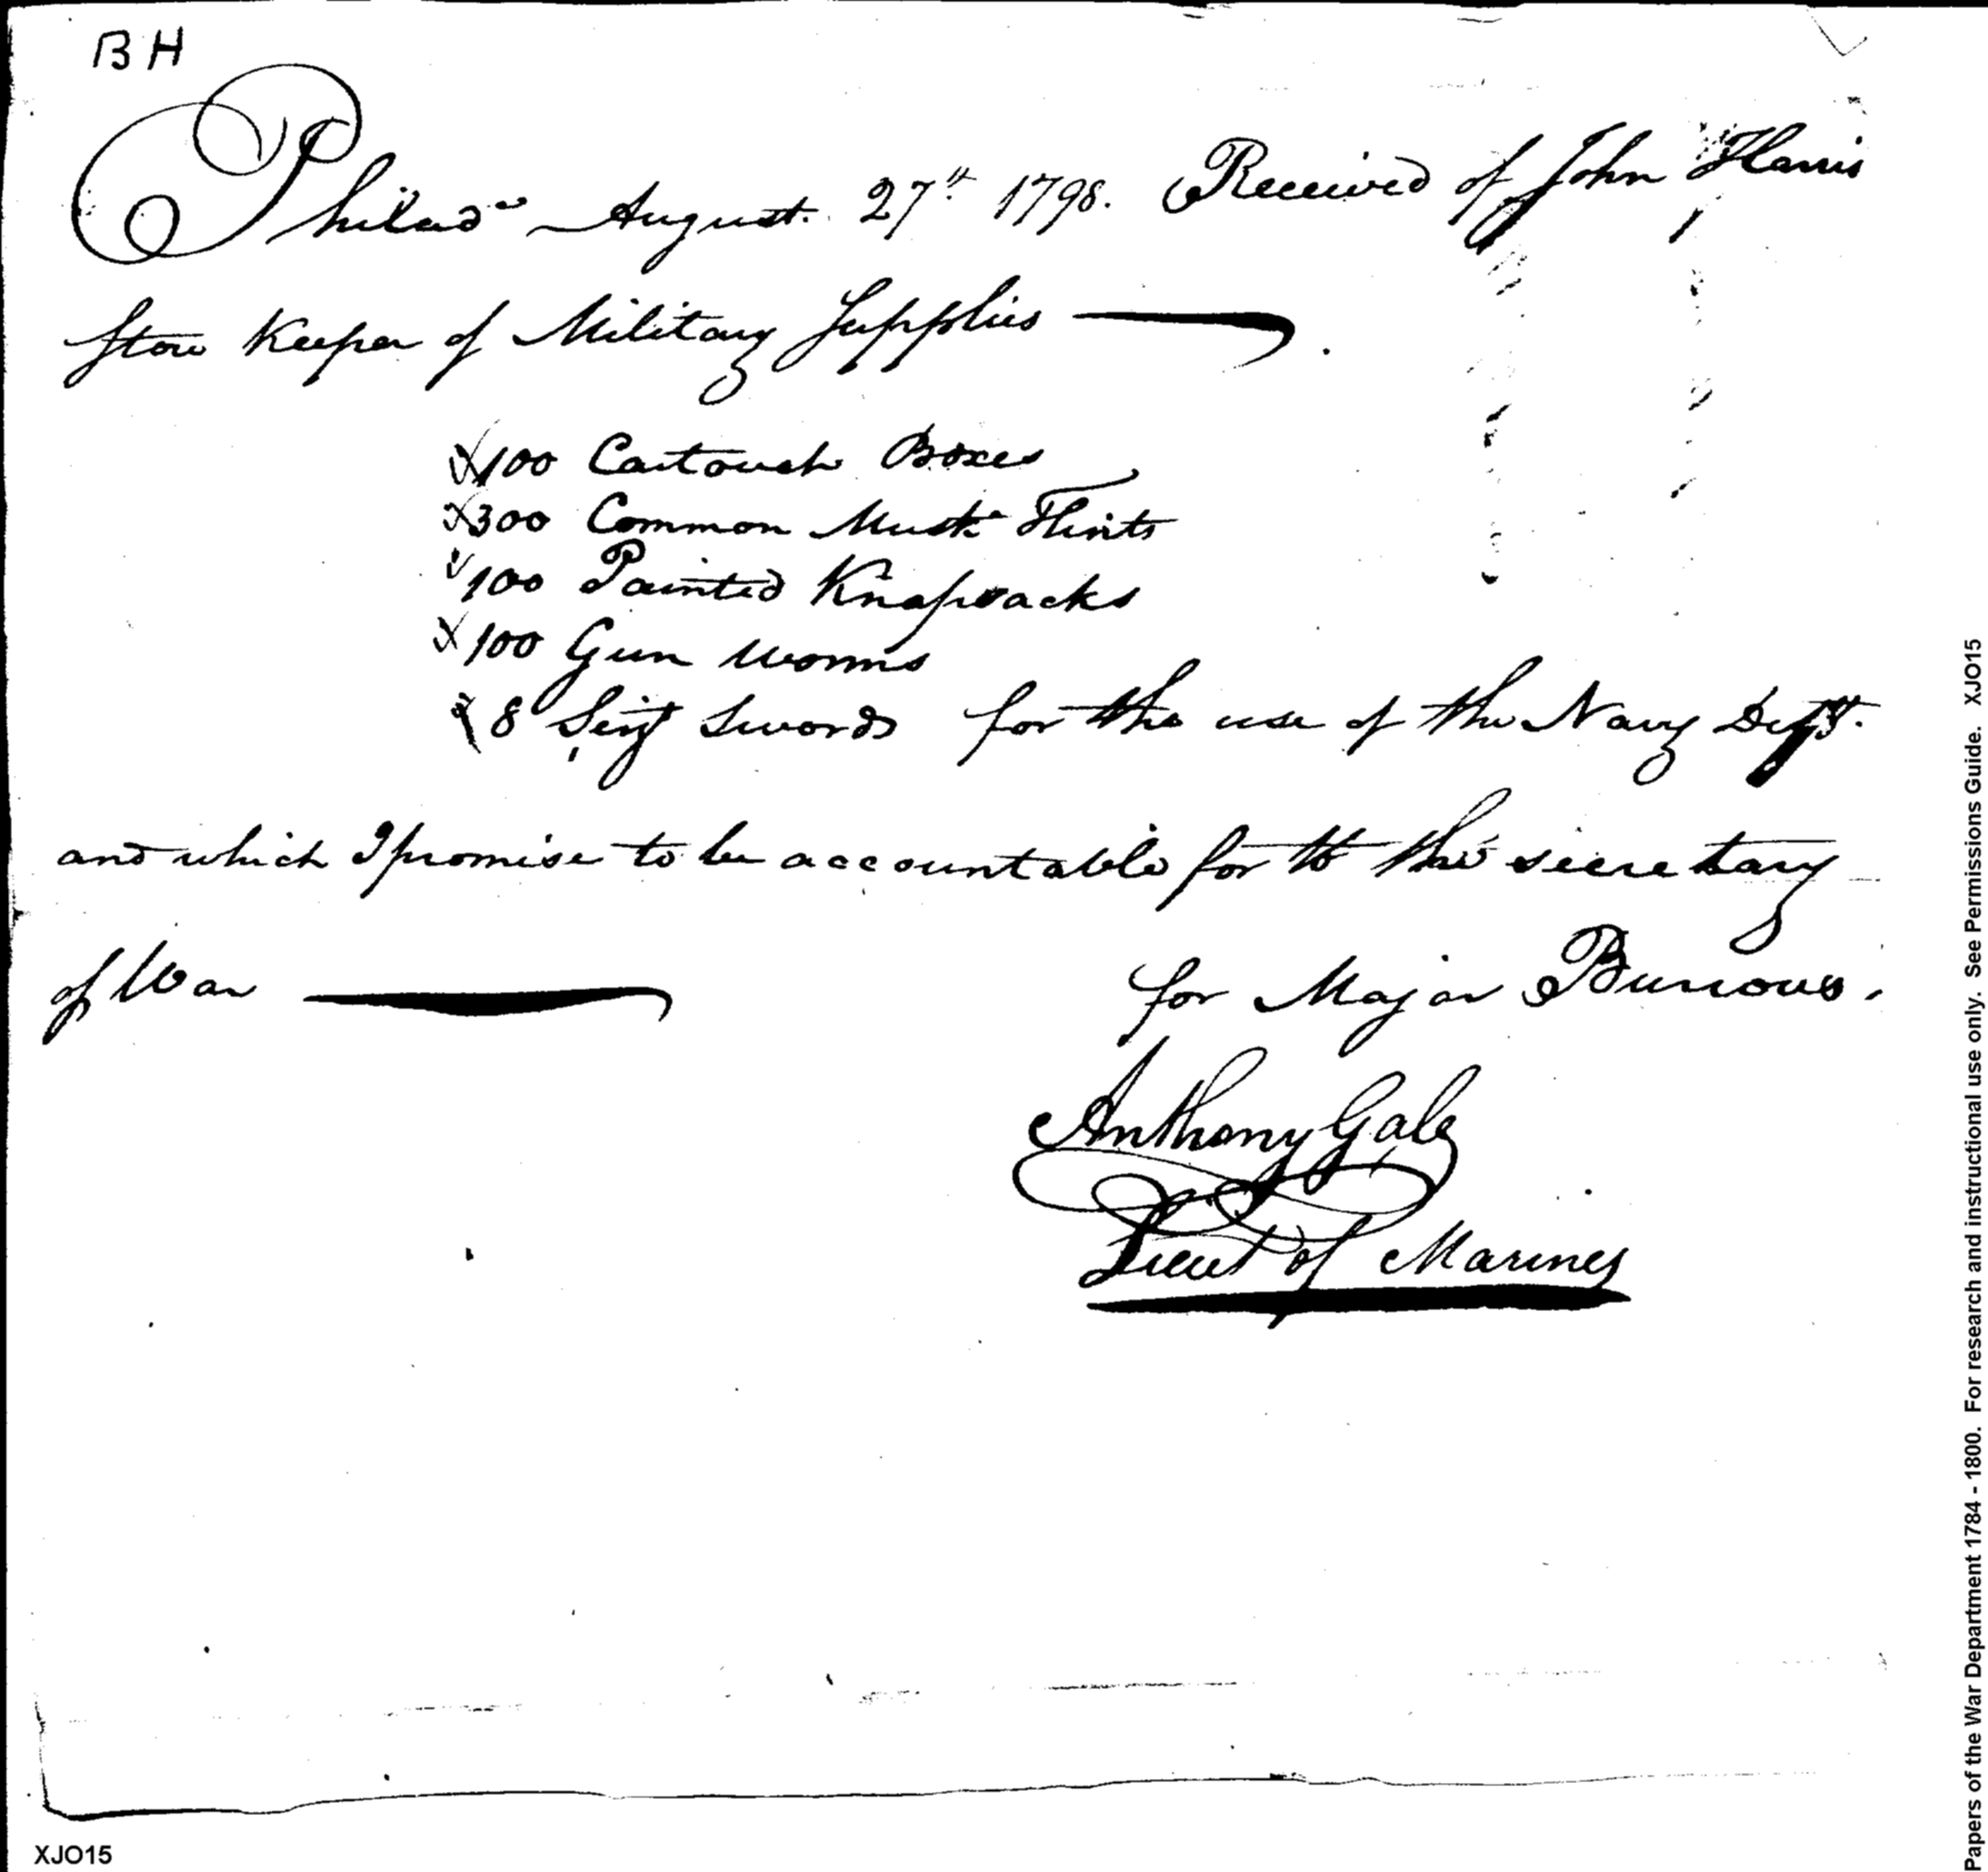 BH
Philada August 27th 1798. Received of John Harris
Store Keeper of Military Supplies
100 Cartouch Boxes
300 Common Muskt Flints
100 Painted Knapsacks
100 Gun worms
8 Sergt Swords for the use of the Navy Dept.
and which I promise to be accountable for to the secretary
of War for Major Burrows.
Anthony Gale
Lieut of Marines
XJO15
Papers of the War Department 1784 - 1800. For research and instructional use only. See Permissions Guide. XJO15